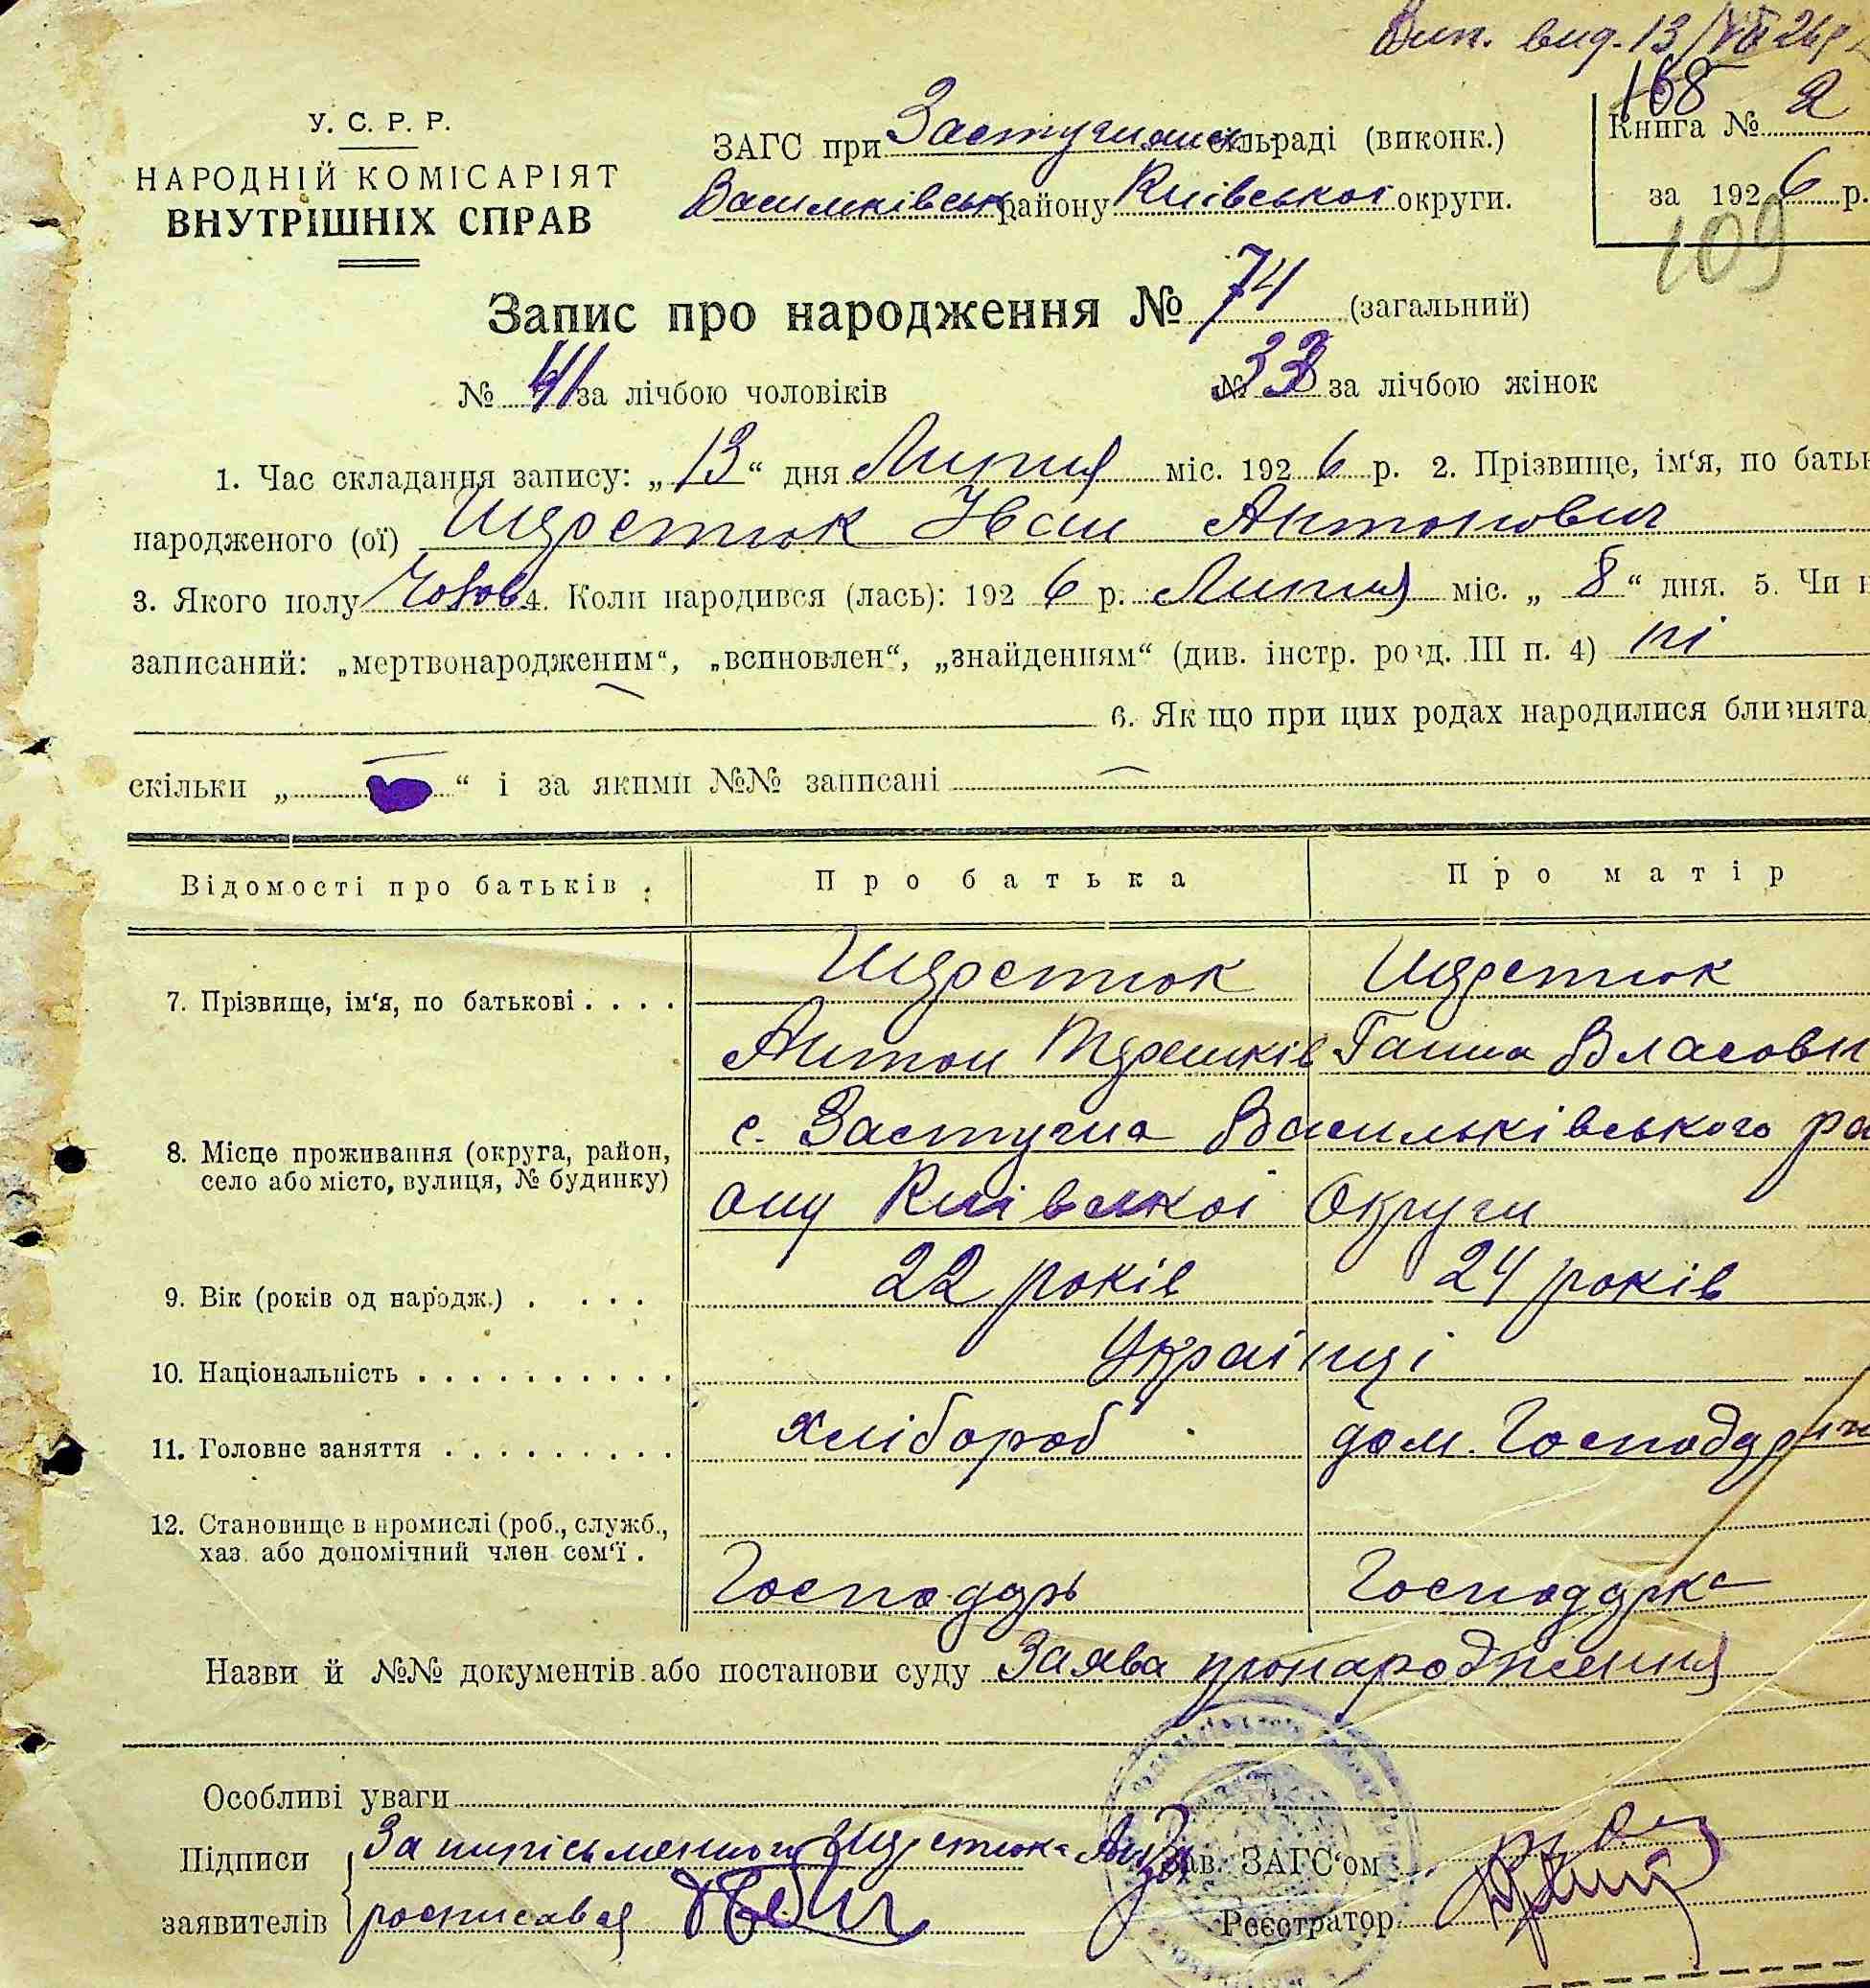 Вип. вид. 13/VII 26 р.
168
У. С. Р. Р.
НАРОДНІЙ КОМІСАРІЯТ
ВНУТРІШНІХ СПРАВ
ЗАГС при Застугнянск сільраді (виконк.)
Васильківськ району Київської округи.
Книга № 2
за 1926 р.
109
Запис про народження № 74 (загальний)
№ 41 за лічбою чоловіків № 33 за лічбою жінок
1. Час складання запису: „13“ дня Липня міс. 1926 р. 2. Прізвище, ім‘я, по батьк
народженого (ої) Шерстюк Іван Антонович
3. Якого полу Чолов 4. Коли народився (лась): 1926 р. Липня міс. „8“ дня. 5. Чи н
записаний: „мертвонародженим“, „всиновлен“, „знайденням“ (див. інстр. розд. III п. 4) ні
6. Як що при цих родах народилися близнята,
скільки „ “ і за якими №№ записані
Відомості про батьків. Про батька Про матір
7. Прізвище, ім‘я, по батькові . . . . Шерстюк Шерстюк
Антон Терешків Ганна Власовн
8. Місце проживання (округа, район, село або місто, вулиця, № будинку) с. Застугна Васильківського ра
ону Київської Округи
9. Вік (років од народж.) . . . . 22 років 24 років
10. Національність . . . . . . . . . . . Українці
11. Головне заняття . . . . . . . . . хлібороб дом. Господарки
12. Становище в промислі (роб., служб.,
хаз. або допомічний член сем‘ї .
Господарь Господарка
Назви й №№ документів або постанови суду Заява про народження
Особливі уваги
Підписи За неписьменного Шерстюка Ант
Зав. ЗАГС‘ом
заявителів росписався
Реєстратор